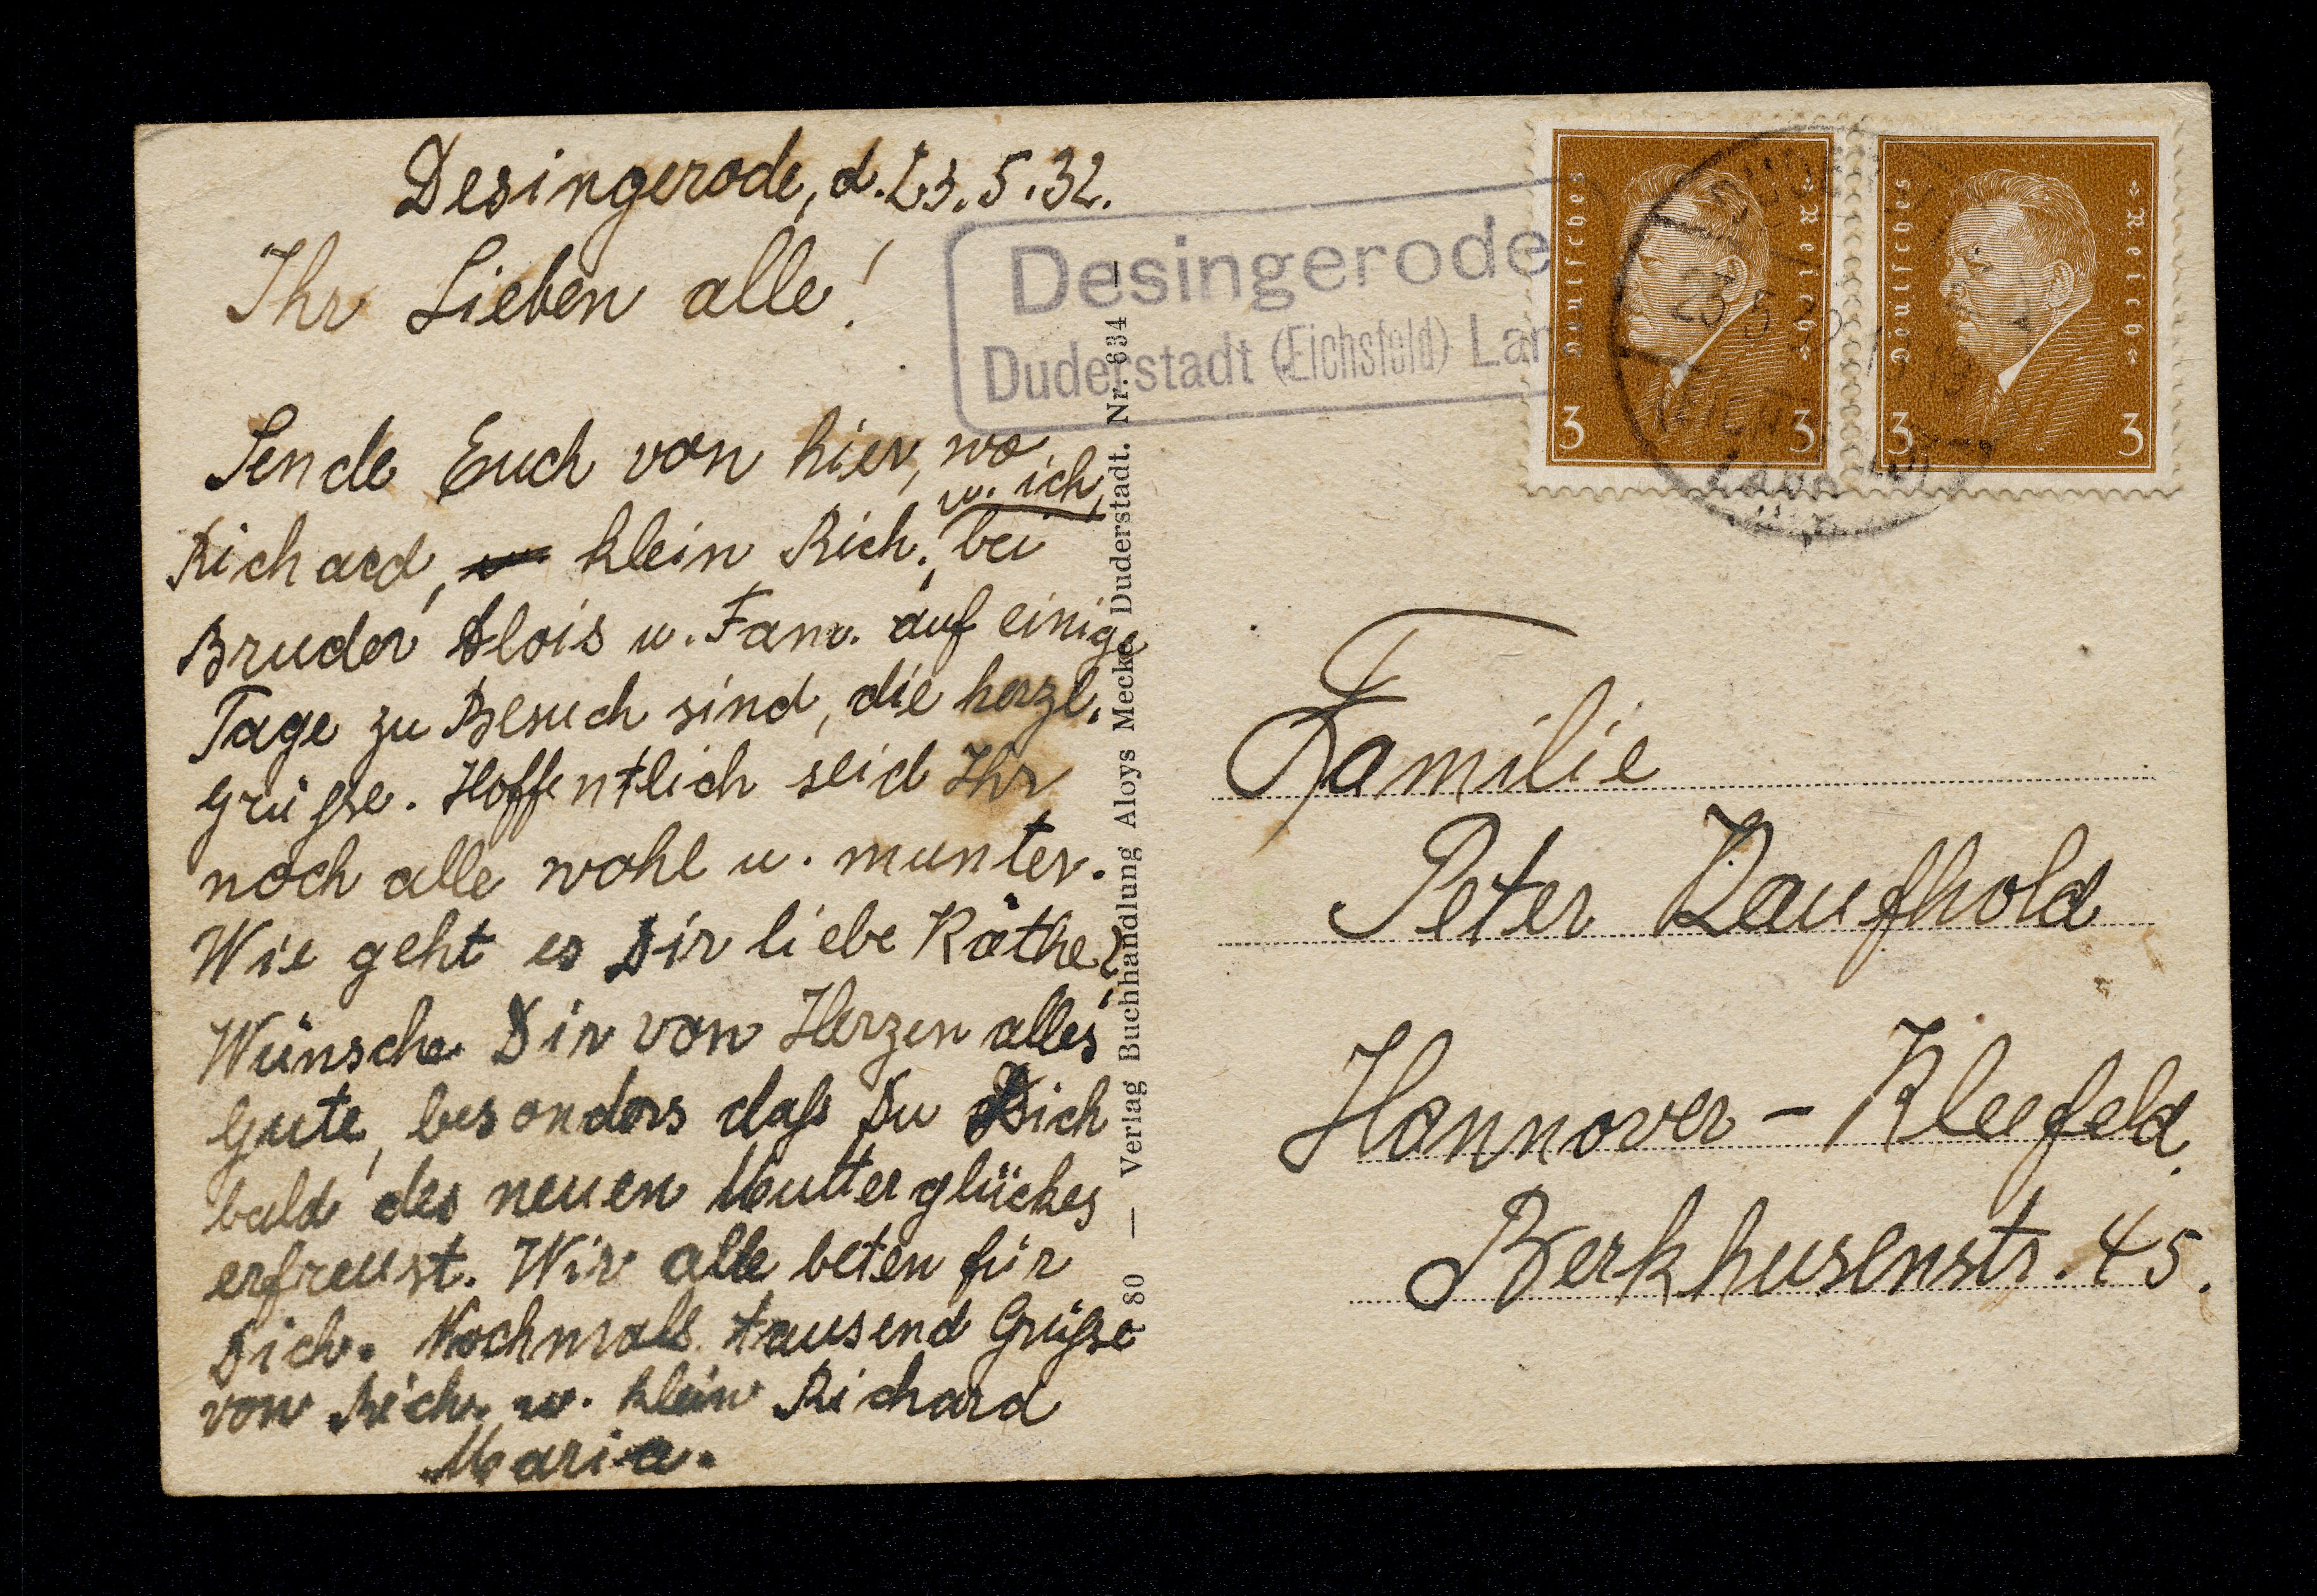 Desingerode, d. 23.5.32.
Ihr Lieben alle!
Sende Euch von hier, wo
u. ich,
Richard, klein Rich., bei
Bruder Alois u. Fam. auf einige
Tage zu Besuch sind, die herzl.
Grüße. Hoffentlich seid Ihr
noch alle wohl u. munter.
Wie geht es Dir liebe Käthe?
Wünsche Dir von Herzen alles
Gute, besonders daß Du Dich
bald des neuen Mutterglückes
erfreust. Wir alle beten für
Dich. Nochmals tausend Grüße
von Rich. u. klein Richard
Maria.
80 — Verlag Buchhandlung Aloys Mecke Duderstadt. Nr. 634 —
Desingerode
Duderstadt (Eichsfeld) Lan
Deutsches Reich
3 3
Deutsches Reich
3 3
23 5
Familie
Peter Kaufhold
Hannover - Kleefeld.
Berkhusenstr. 45.